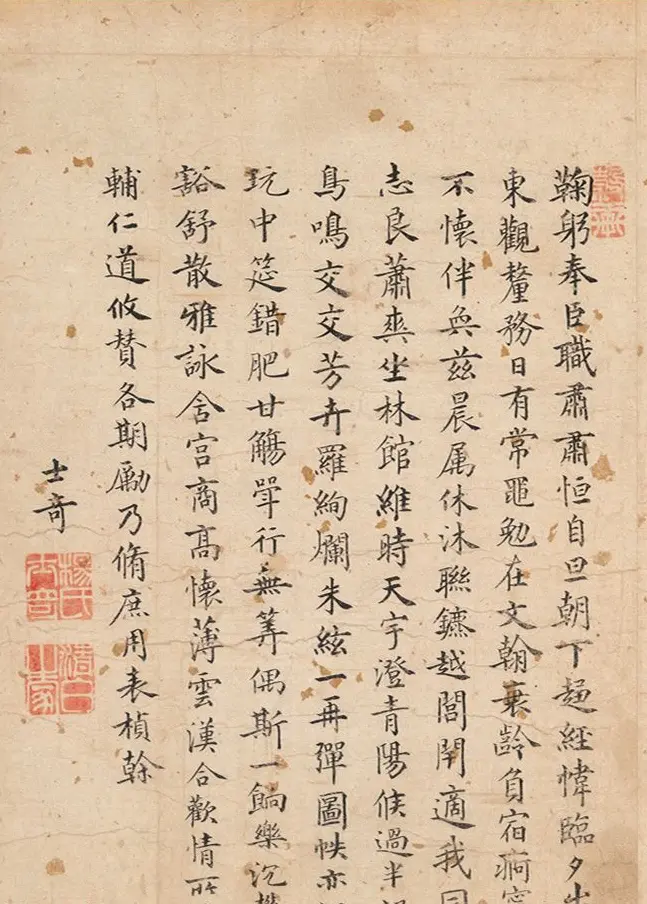 鞠躬奉臣職肅肅恒自旦朝下趨經幃臨夕出
東觀釐務日有常黽勉在文翰衰齡負宿痾
不懷伴奐茲晨属休沐聯鑣越閭閈適我同
志良蕭爽坐林館維時天宇澄青陽候過半
鳥鳴交交芳卉羅絢爛朱絃一再彈圖帙亦
玩中筵錯肥甘觴斝行無筭偶斯一餉樂沉
豁舒散雅詠含宮商髙懷薄雲漢合歡情所
輔仁道攸賛各期勵乃脩庶用表楨榦
士奇
楊氏士奇